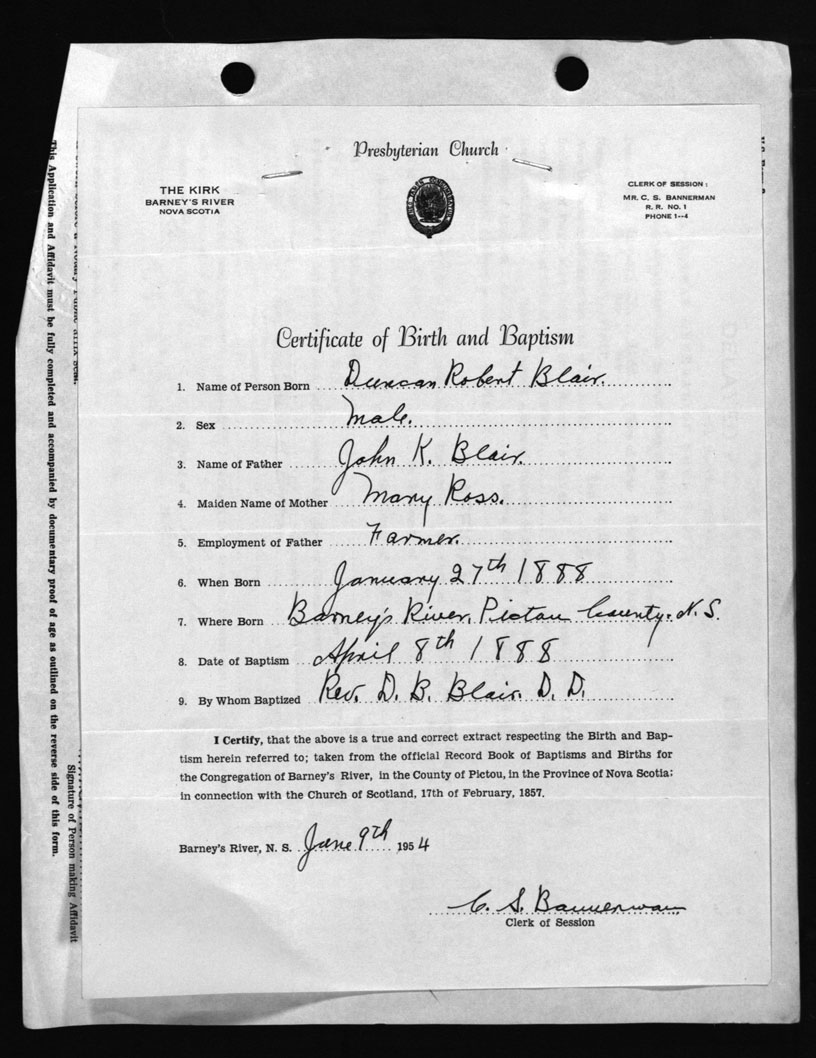 Presbyterian Church
THE KIRK
BARNEY'S RIVER
NOVA SCOTIA
CLERK OF SESSION:
MR. C. S. BANNERMAN
R. R. NO. 1
PHONE 1--4
Certificate of Birth and Baptism
1. Name of Person Born Duncan Robert Blair.
2. Sex Male.
3. Name of Father John K. Blair.
4. Maiden Name of Mother Mary Ross.
5. Employment of Father Farmer.
6. When Born January 27th 1888
7. Where Born Barney's River, Pictou County. N.S.
8. Date of Baptism April 8th 1888
9. By Whom Baptized Rev. D. B. Blair. D. D.
I Certify, that the above is a true and correct extract respecting the Birth and Bap-
tism herein referred to; taken from the official Record Book of Baptisms and Births for
the Congregation of Barney's River, in the County of Pictou, in the Province of Nova Scotia:
in connection with the Church of Scotland, 17th of February, 1857.
Barney's River, N. S. June 9th 1954
C. S. Bannerman
Clerk of Session
This Application and Affidavit must be fully completed and accompanied by documentary proof of age as outlined on the reverse side of this form.
Signature of Person making Affidavit